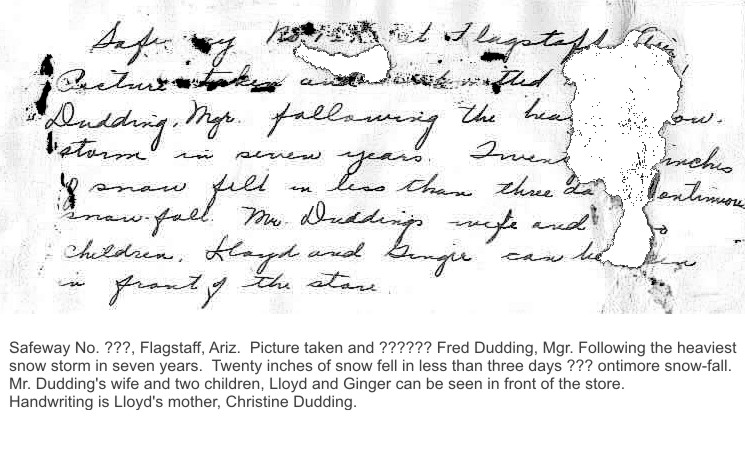 Safeway No. at Flagstaff, Ariz.
Picture taken and
Dudding, Mgr. following the snow-
storm in seven years. inches
of snow fell in less than three
snow-fall. Mr. Duddings wife and
children, Lloyd and Gingie can be
in front of the store.
Safeway No. ???, Flagstaff, Ariz. Picture taken and ?????? Fred Dudding, Mgr. Following the heaviest
snow storm in seven years. Twenty inches of snow fell in less than three days ??? ontimore snow-fall.
Mr. Dudding's wife and two children, Lloyd and Ginger can be seen in front of the store.
Handwriting is Lloyd's mother, Christine Dudding.